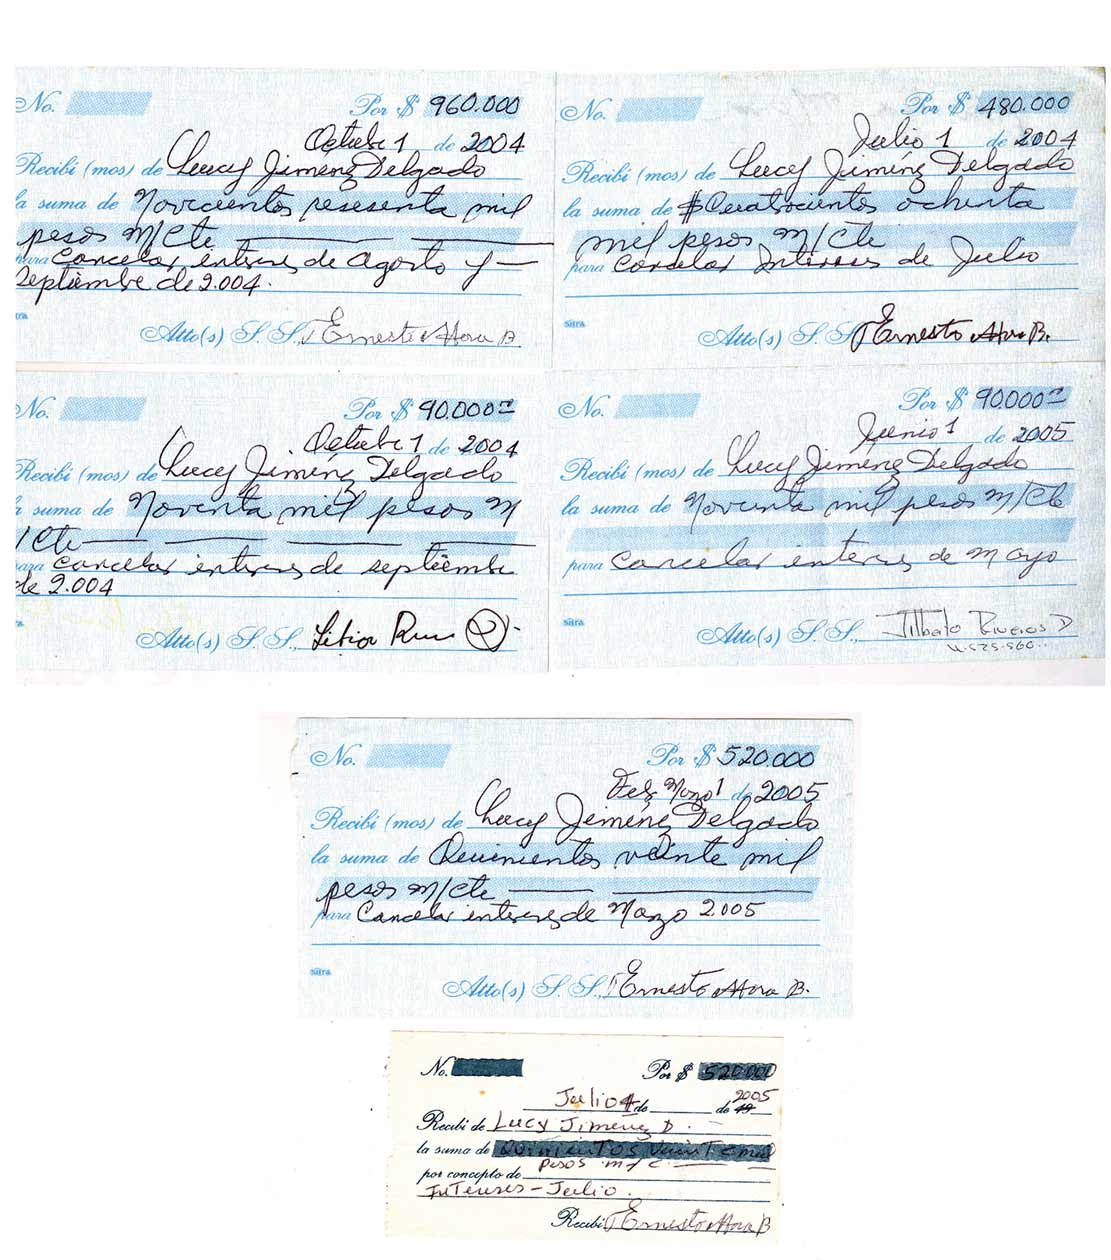 No. Por $ 960.000
Octubre 1 de 2004
Recibí (mos) de Lucy Jiménez Delgado
la suma de Novecientos sesenta mil
pesos M/Cte
para Cancelar interes de agosto y
septiembre de 2.004.
Atto(s) S. S., Ernesto Mora B
No. Por $ 480.000
Julio 1 de 2004
Recibí (mos) de Lucy Jiménez Delgado
la suma de $ Cuatrocientos ochenta
mil pesos M/Cte
para Cancelar Intereses de Julio
sitra
Atto(s) S. S. Ernesto Mora B.
No. Por $ 90.000
Octubre 1 de 2004
Recibí (mos) de Lucy Jiménez Delgado
la suma de Noventa mil pesos M
/Cte
para Cancelar interes de septiembre
de 2.004
Atto(s) S. S.
No. Por $ 90000
Junio 1 de 2005
Recibí (mos) de Lucy Jiménez Delgado
la suma de Noventa mil pesos M/Cte
para Cancelar interes de Mayo
sitra
Atto(s) S. S., Jilberto Riveros D
No. Por $ 520.000
Marzo 1 de 2005
Recibí (mos) de Lucy Jiménez Delgado
la suma de Quinientos veinte mil
pesos M/Cte
para Cancelar interes de Marzo 2.005
sitra
Atto(s) S. S., Ernesto Mora B.
No. Por $ 520.000
Julio 4 de de 2005
Recibí de Lucy Jiménez D.
la suma de Quinientos Veinte mil
por concepto de pesos m/c
Intereses - Julio.
Recibí Ernesto Mora B